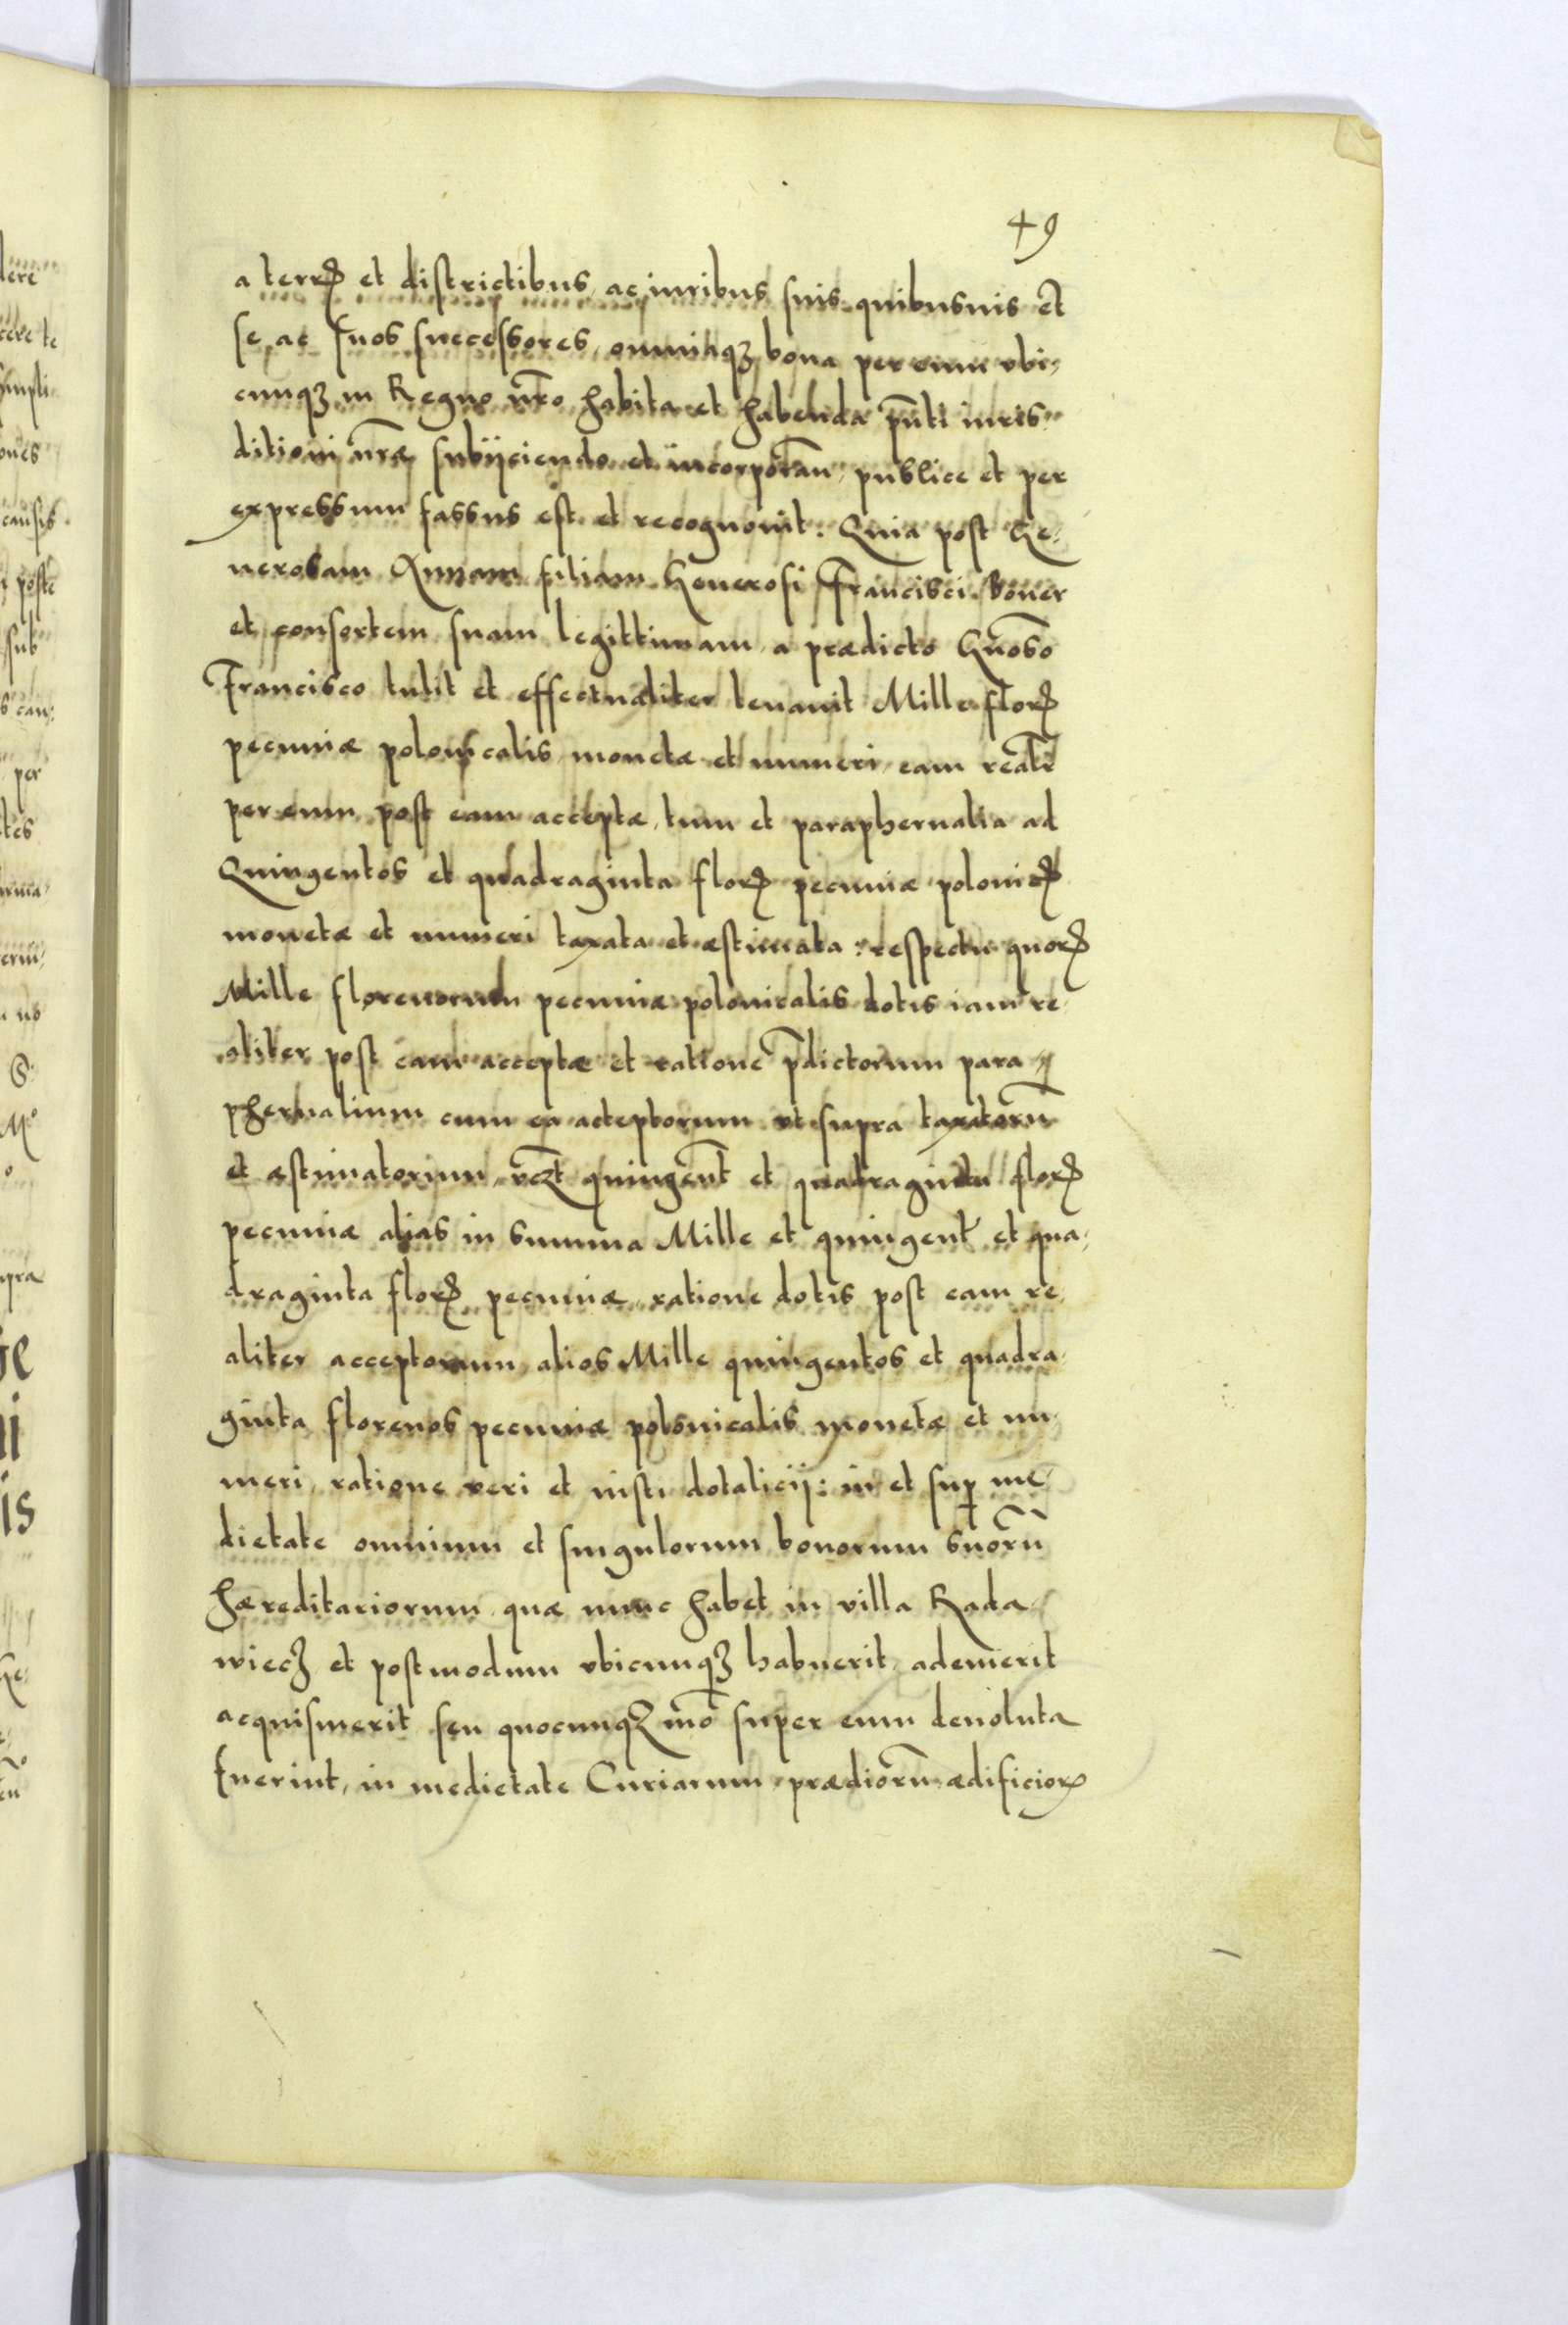 49
a terrꝭ et districtibus, ac iuribus suis quibusuis et
se, ac suos successores, omniaqꝫ bona per eum vbi-
cunqꝫ in Regno nr̃o habita et habenda pñti iuris-
ditioni nr̃æ subijciendo et incorporañ, publice et per
expressum fassus est et recognouit: Quia post Ge-
nerosam Annam filiam Generosi Francisci Boner
et consortem suam legittimam, a prædicto Gñoso
Francisco tulit et effectualiter leuauit Mille florꝭ
pecuniæ polonicalis, monetæ et numeri, eam realr̃
per eum post eam acceptæ, tum et paraphernalia ad
Quingentos et quadraginta florꝭ pecuniæ polonicꝭ
monetæ et numeri taxata et æstimata: respectu quorꝭ
Mille florenorum pecuniæ polonicalis dotis iam re-
aliter post eam acceptæ et ratione p̃dictorum para-
phernalium cum ea acceptorum vt supra taxatorũ
et æstimatorum, vꝫt quingent̃ et quadraginta florꝭ
pecuniæ alias in summa Mille et quingent̃ et qua-
draginta florꝭ pecuniæ, ratione dotis post eam re-
aliter acceptorum, alios Mille quingentos et quadra-
ginta florenos pecuniæ polonicalis monetæ et nu-
meri, ratione veri et iusti dotalicij: in et suꝑ me-
dietate omnium et singulorum bonorum suorũ
hæreditariorum, quæ nunc habet in villa Rada-
wiecꝫ et postmodum vbicunqꝫ habuerit, ademerit
acquisiuerit seu quocunqꝫ mõ super eum deuoluta
fuerint, in medietate Curiarum, prædiorũ, ædificiorꝭ